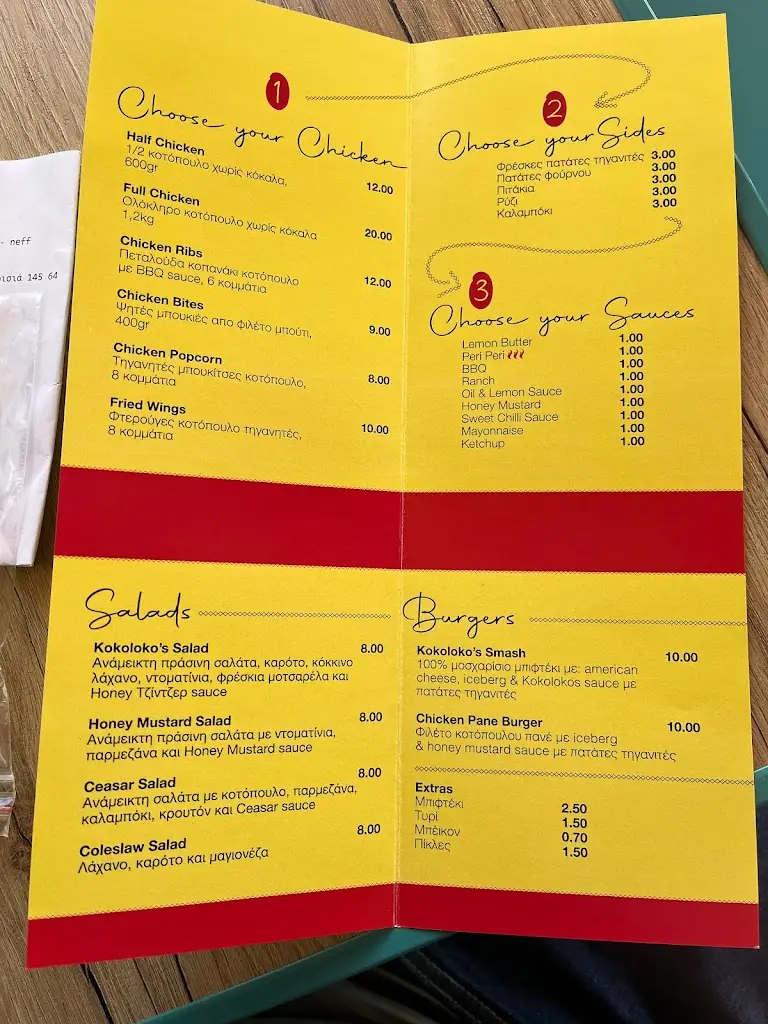 - neff
145 64
1
Choose your Chicken
Half Chicken
1/2 κοτόπουλο χωρίς κόκαλα,
600gr 12.00
Full Chicken
Ολόκληρο κοτόπουλο χωρίς κόκαλα
1,2kg 20.00
Chicken Ribs
Πεταλούδα κοπανάκι κοτόπουλο
με BBQ sauce, 6 κομμάτια 12.00
Chicken Bites
Ψητές μπουκιές απο φιλέτο μπούτι,
400gr 9.00
Chicken Popcorn
Τηγανητές μπουκίτσες κοτόπουλο,
8 κομμάτια 8.00
Fried Wings
Φτερούγες κοτόπουλο τηγανητές,
8 κομμάτια 10.00
2
Choose your Sides
Φρέσκες πατάτες τηγανιτές 3.00
Πατάτες φούρνου 3.00
Πιτάκια 3.00
Ρύζι 3.00
Καλαμπόκι 3.00
3
Choose your Sauces
Lemon Butter 1.00
Peri Peri 1.00
BBQ 1.00
Ranch 1.00
Oil & Lemon Sauce 1.00
Honey Mustard 1.00
Sweet Chilli Sauce 1.00
Mayonnaise 1.00
Ketchup 1.00
Salads
Kokoloko's Salad 8.00
Ανάμεικτη πράσινη σαλάτα, καρότο, κόκκινο
λάχανο, ντοματίνια, φρέσκια μοτσαρέλα και
Honey Τζίντζερ sauce
Honey Mustard Salad 8.00
Ανάμεικτη πράσινη σαλάτα με ντοματίνια,
παρμεζάνα και Honey Mustard sauce
Ceasar Salad 8.00
Ανάμεικτη σαλάτα με κοτόπουλο, παρμεζάνα,
καλαμπόκι, κρουτόν και Ceasar sauce
Coleslaw Salad 8.00
Λάχανο, καρότο και μαγιονέζα
Burgers
Kokoloko's Smash 10.00
100% μοσχαρίσιο μπιφτέκι με: american
cheese, iceberg & Kokolokos sauce με
πατάτες τηγανιτές
Chicken Pane Burger 10.00
Φιλέτο κοτόπουλου πανέ με iceberg
& honey mustard sauce με πατάτες τηγανιτές
Extras
Μπιφτέκι 2.50
Τυρί 1.50
Μπέικον 0.70
Πίκλες 1.50